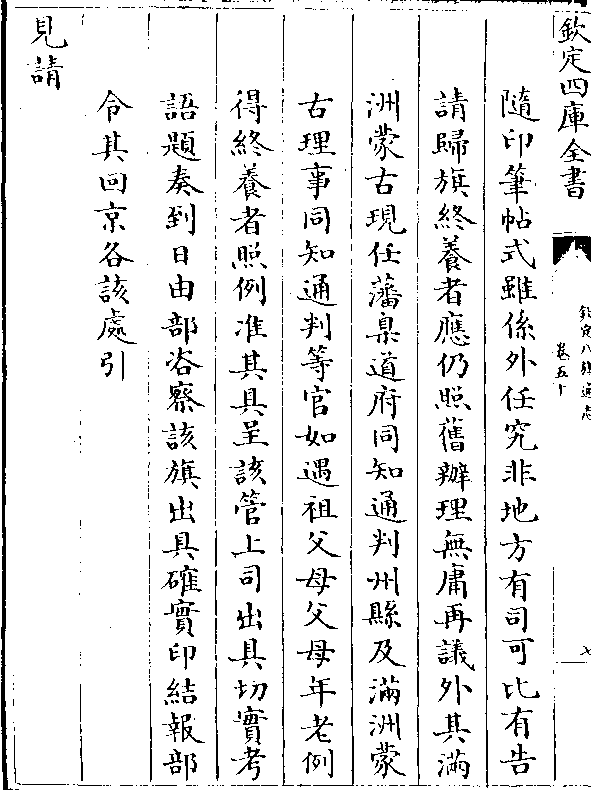 欽定四庫全書
欽定八旗通志
卷五十
七
隨印筆帖式雖係外任究非地方有司可比有告
請歸旗終養者應仍照舊辦理無庸再議外其滿
洲蒙古現任藩臬道府同知通判州縣及滿洲蒙
古理事同知通判等官如遇祖父母父母年老例
得終養者照例准其具呈該管上司出具切實考
語題奏到日由部咨察該旗出具確實印結報部
令其回京各該處引
見請